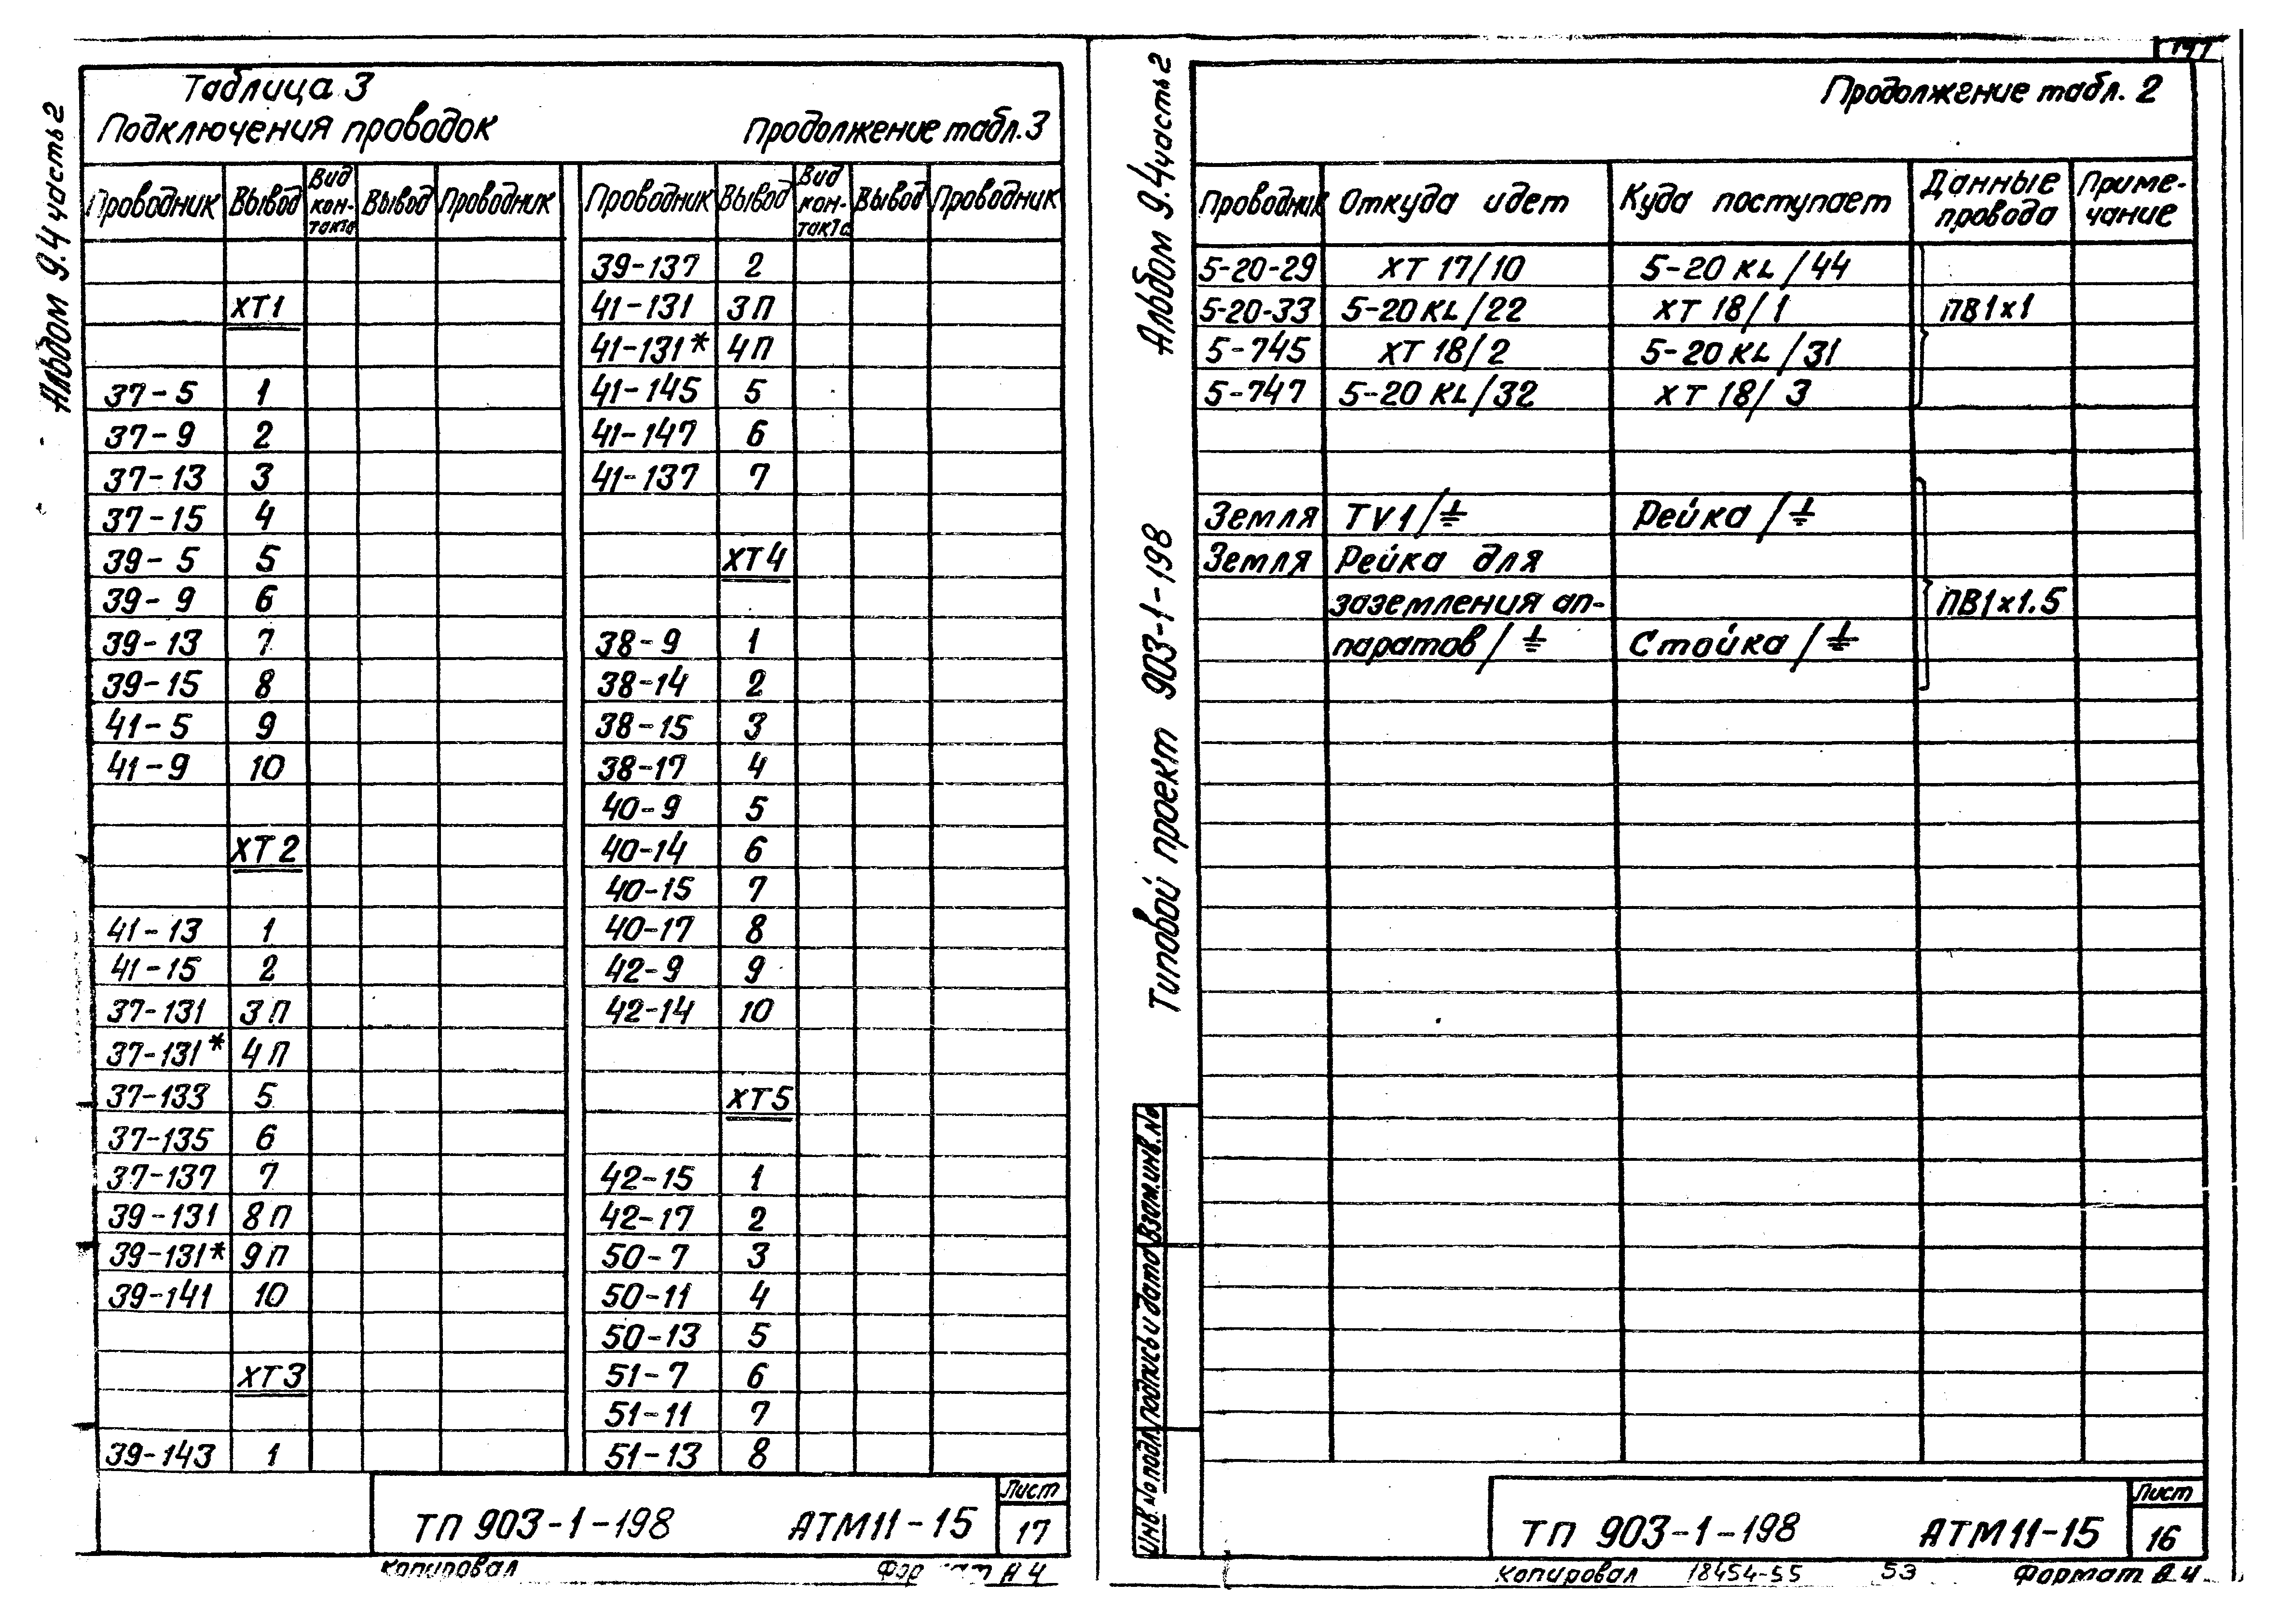 Альбом 9.4 часть 2
Таблица 3
Подключения проводок Продолжение табл.3
Проводник Вывод Вид кон-такта Вывод Проводник
ХТ1
37-5 1
37-9 2
37-13 3
37-15 4
39-5 5
39-9 6
39-13 7
39-15 8
41-5 9
41-9 10
ХТ2
41-13 1
41-15 2
37-131 3П
37-131* 4П
37-133 5
37-135 6
37-137 7
39-131 8П
39-131* 9П
39-141 10
ХТ3
39-143 1
Проводник Вывод Вид кон-такта Вывод Проводник
39-137 2
41-131 3П
41-131* 4П
41-145 5
41-147 6
41-137 7
ХТ4
38-9 1
38-14 2
38-15 3
38-17 4
40-9 5
40-14 6
40-15 7
40-17 8
42-9 9
42-14 10
ХТ5
42-15 1
42-17 2
50-7 3
50-11 4
50-13 5
51-7 6
51-11 7
51-13 8
ТП 903-1-198 АТМ11-15
Лист
17
Копировал А4
Альбом 9.4 часть 2
Типовой проект 903-1-198
Продолжение табл. 2
Проводник Откуда идет Куда поступает Данные провода Приме-чание
5-20-29 ХТ 17/10 5-20 KL/44
5-20-33 5-20 KL/22 ХТ 18/1 ПВ1х1
5-745 ХТ 18/2 5-20 KL/31
5-747 5-20 KL/32 ХТ 18/3
Земля TV1/⏚ Рейка/⏚
Земля Рейка для
заземления ап- ПВ1х1.5
паратов/⏚ Стойка/⏚
Инв. № подл. Подпись и дата Взам.инв.№
ТП 903-1-198 АТМ11-15
Лист
16
Копировал 18454-55 53 Формат А4